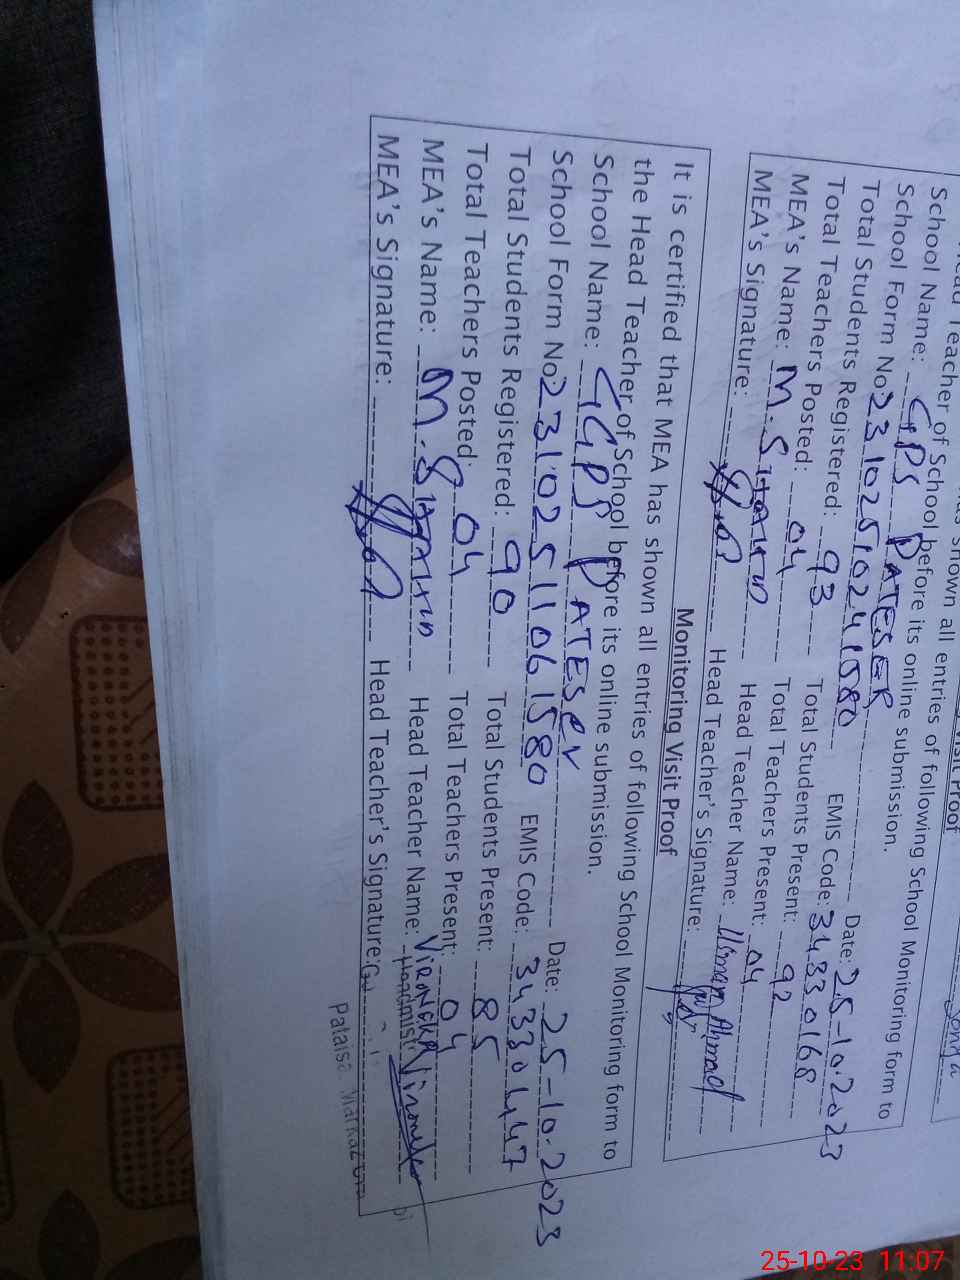 shown all entries of following School Monitoring form to
Head Teacher of School before its online submission.
School Name: GPS PATESER Date: 25-10-2023
School Form No 23102510241580 EMIS Code: 34330168
Total Students Registered: 93 Total Students Present: 92
Total Teachers Posted: 04 Total Teachers Present: 04
MEA's Name: M. Head Teacher Name: Usman Ahmad
MEA's Signature: Head Teacher's Signature:
Monitoring Visit Proof
It is certified that MEA has shown all entries of following School Monitoring form to
the Head Teacher of School before its online submission.
School Name: GGPS PATESER Date: 25-10-2023
School Form No 23102511061580 EMIS Code: 34330447
Total Students Registered: 90 Total Students Present: 85
Total Teachers Posted: 04 Total Teachers Present: 04
MEA's Name: M. Head Teacher Name:
MEA's Signature: Head Teacher's Signature:
25-10-23 11:07